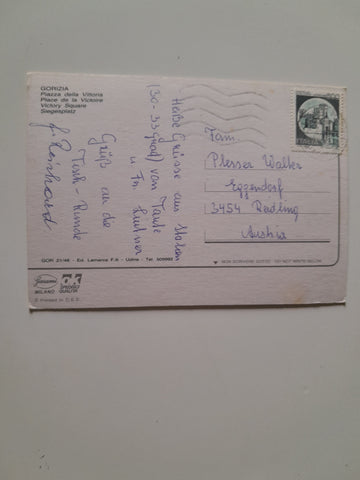 GORIZIA
Piazza della Vittoria
Place de la Victoire
Victory Square
Siegesplatz
Heiße Grüsse aus Italien
(30-35 Grad) von Tante
u. Fr.
Grüß an die
Tisch-Runde
Reinhard
Fam.
Plesser Walter
Eggendorf
3454 Reidling
Austria
GOR 21/46 - Ed. Lamarca F.lli - Udine - Tel. 500992
NON SCRIVERE SOTTO - DO NOT WRITE BELOW
MILANO